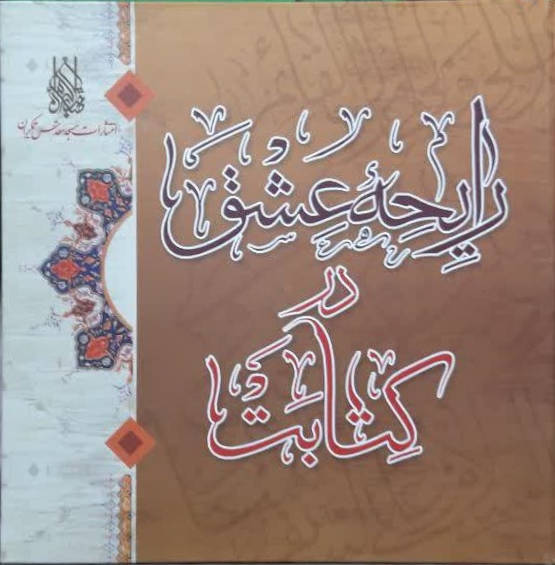 رایحهٔ عِشق
در
کِتابَت
انتشارات مسجد مقدس جمکران